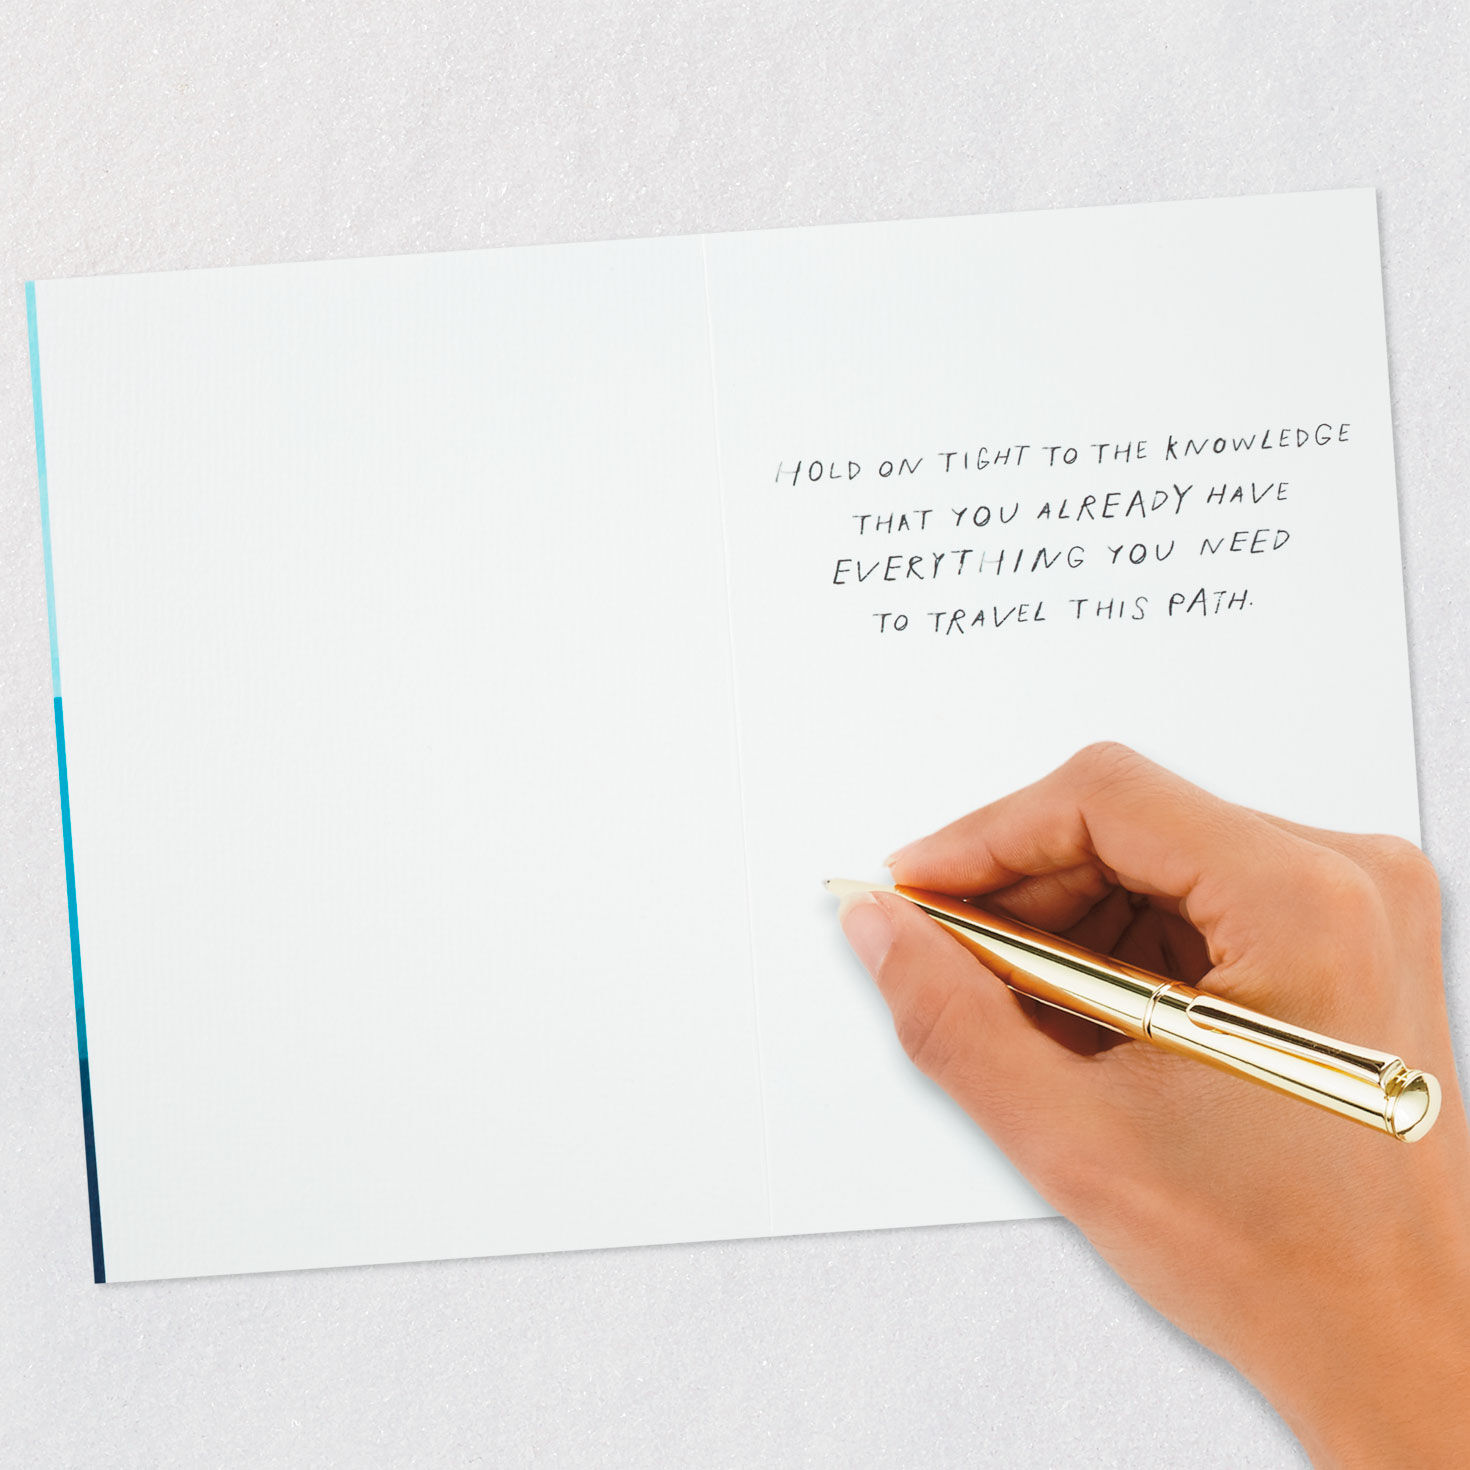 HOLD ON TIGHT TO THE KNOWLEDGE
THAT YOU ALREADY HAVE
EVERYTHING YOU NEED
TO TRAVEL THIS PATH.